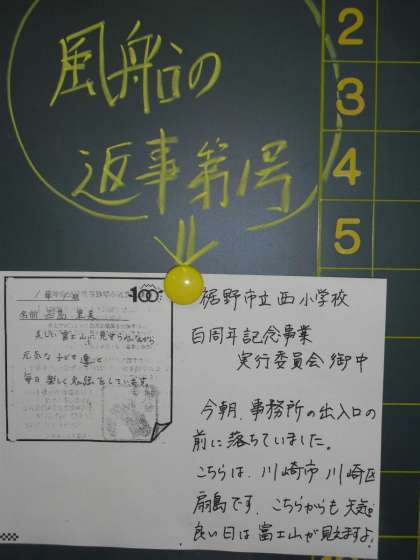 風船の
返事第1号
2
3
4
5
100
名前
美しい富士山に見守られながら
元気な子ども達と
毎日楽しく勉強をしています。
裾野市立西小学校
百周年記念事業
実行委員会御中
今朝、事務所の出入口の
前に落ちていました。
こちらは、川崎市川崎区
扇島です。こちらからも天気の
良い日は富士山が見えますよ。